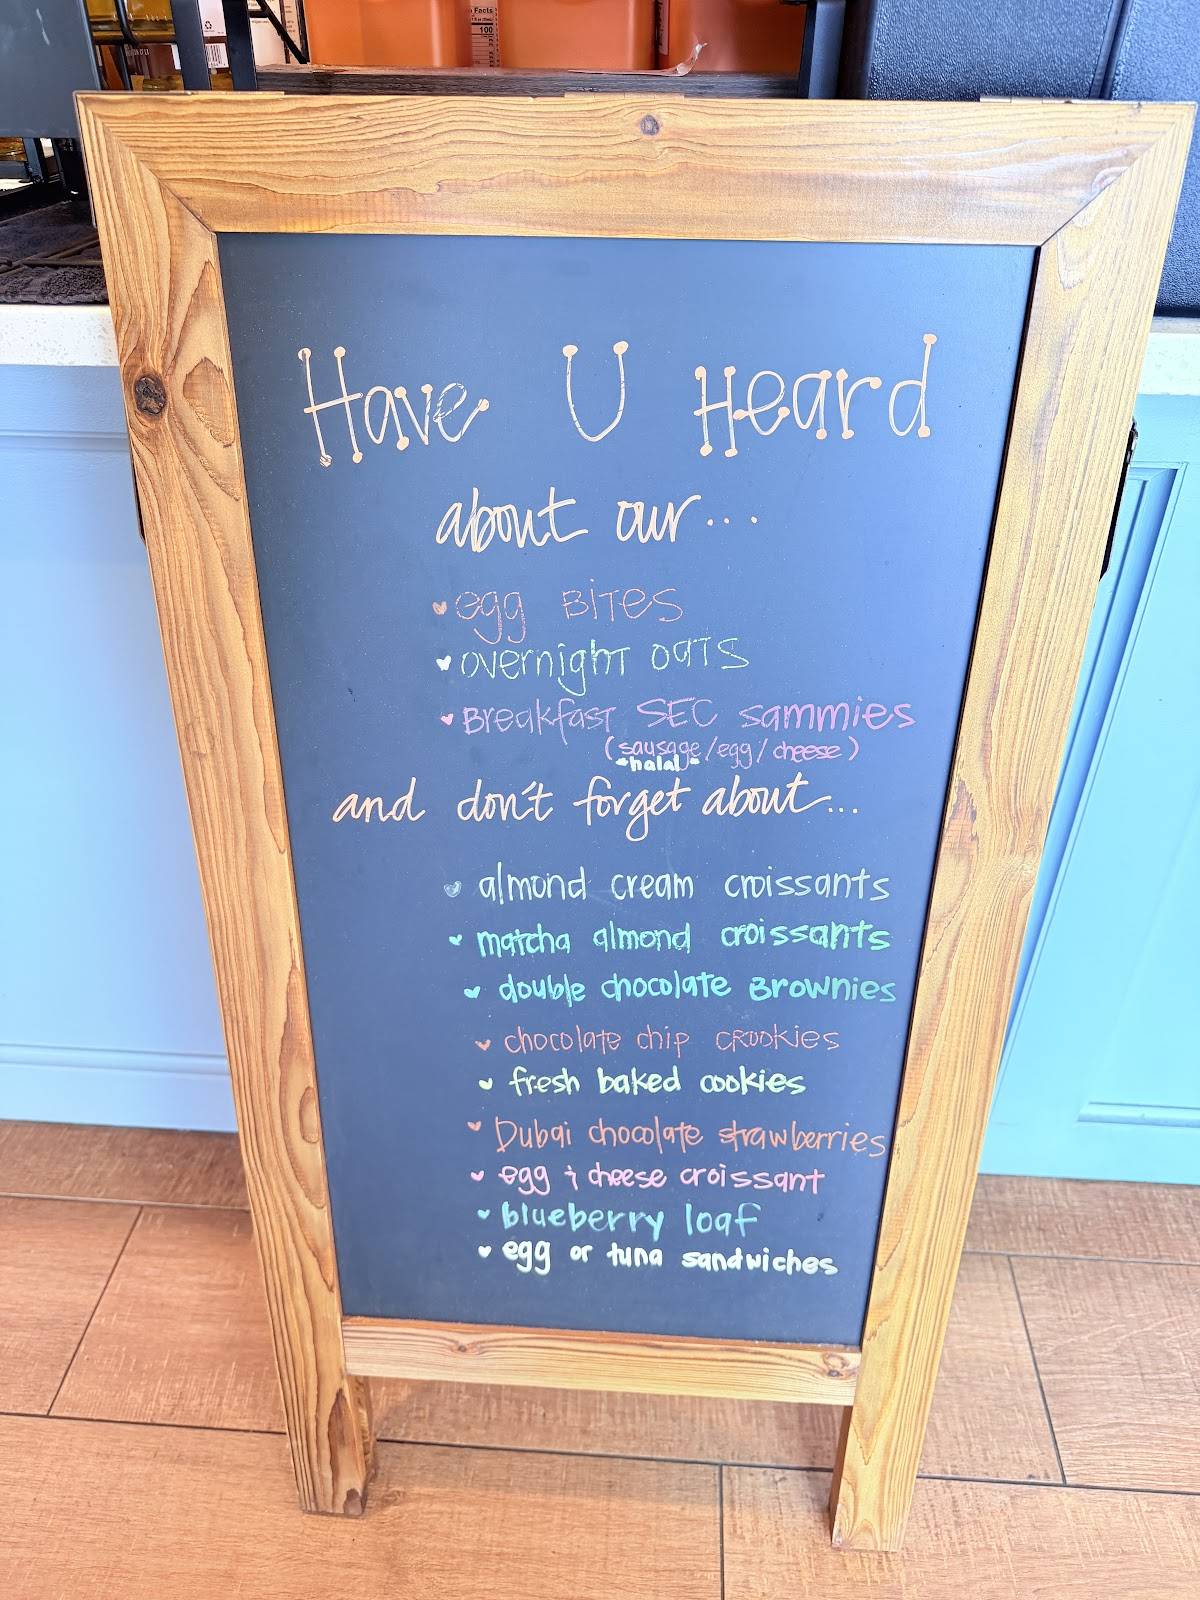 Facts
100
Have U Heard
about our...
egg BITES
overnight oats
Breakfast SEC sammies
(sausage/egg/cheese)
*halal*
and don't forget about...
almond cream croissants
matcha almond croissants
double chocolate Brownies
chocolate chip CROOKIES
fresh baked cookies
Dubai chocolate strawberries
egg & cheese croissant
blueberry loaf
egg or tuna sandwiches